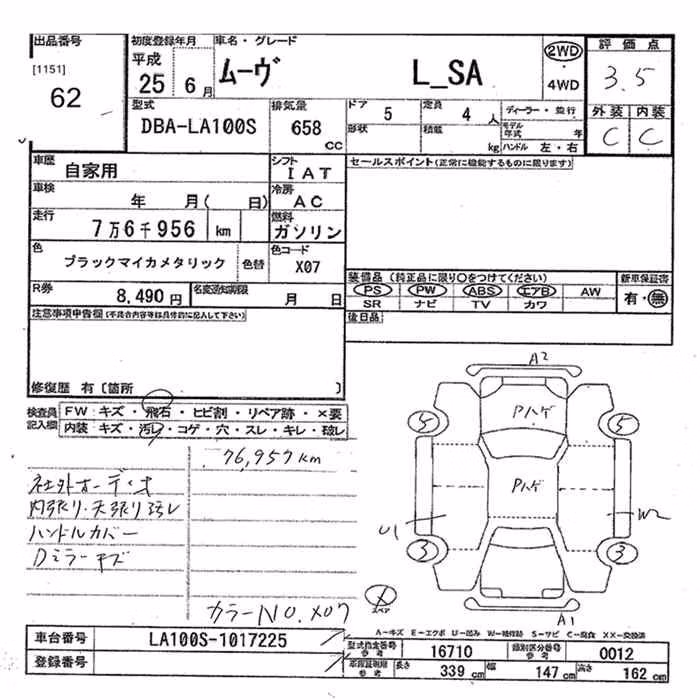 出品番号
[1151]
62
初度登録年月
平成
25年
6月
車名・グレード
ムーヴ L_SA
2WD
・
4WD
評価点
3.5
外装 内装
C C
型式
DBA-LA100S
排気量
658
CC
ドア 5
定員 4人
ディーラー・並行
形状
積載 kg
モデル年式 年
ハンドル 左・右
車歴
自家用
シフト
IAT
セールスポイント(正常に機能するものに限ります)
車検
年 月( 日)
冷房
AC
走行
7万6千956 km
燃料
ガソリン
色
ブラックマイカメタリック
色替
色コード
X07
R券
8,490円
名変通知期限
月 日
装備品(純正品に限り○をつけてください)
PS PW ABS エアB AW
SR ナビ TV カワ
新車保証書
有・無
後日品
注意事項申告欄(不具合内容等は具体的に記入して下さい)
修復歴 有〔箇所 〕
検査員記入欄
FW:キズ・飛石・ヒビ割・リペア跡・×要
内装:キズ・汚レ・コゲ・穴・スレ・キレ・捻レ
76,957km
社外オーディオ
内張り・天張り汚レ
ハンドルカバー
Dミラーキズ
カラーNO.X07
A2
Pハゲ
5 5
Pハゲ
U1 W2
3 3
×
スペア
A1
A―キズ E―エクボ U―凹み W―補修跡 S―サビ C―腐食 XX―交換済
車台番号
LA100S-1017225
登録番号
型式指定番号
参考
16710
類別区分番号
参考
0012
車庫証明用
参考
長さ 339cm
幅 147cm
高さ 162cm